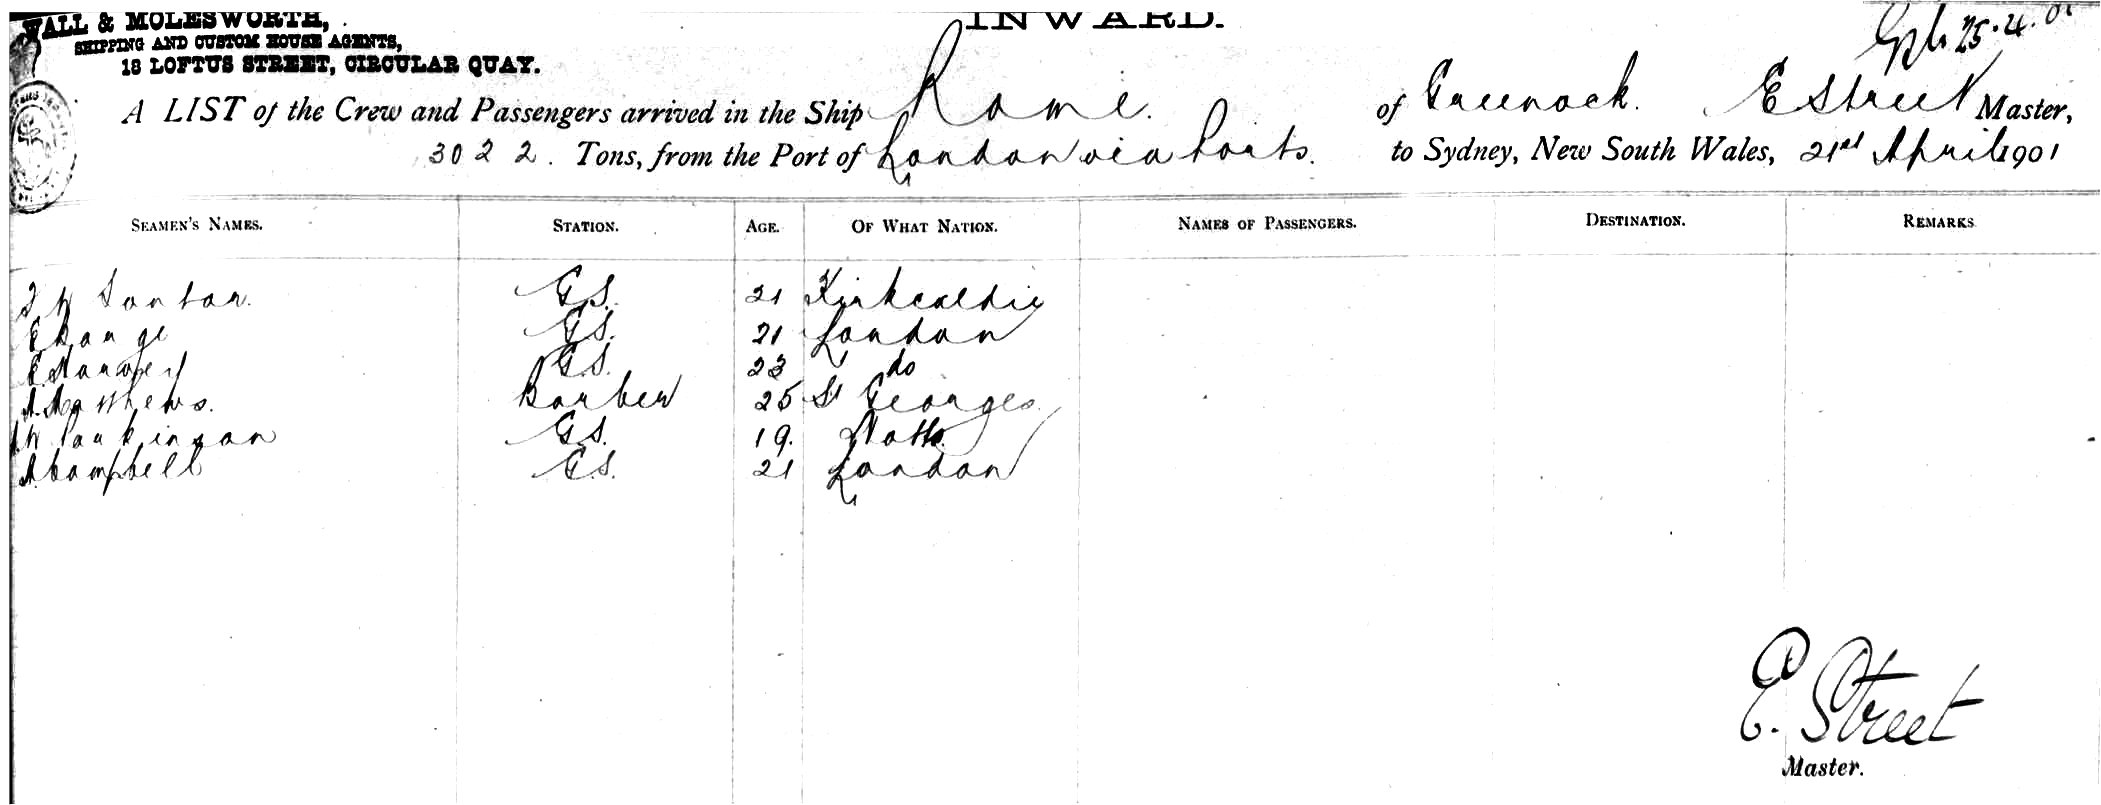 WALL & MOLESWORTH,
SHIPPING AND CUSTOM HOUSE AGENTS,
18 LOFTUS STREET, CIRCULAR QUAY.
INWARD.
25.4.01
A LIST of the Crew and Passengers arrived in the Ship Rome. of Greenock. E Street Master,
3022. Tons, from the Port of London via Ports. to Sydney, New South Wales, 21st April 1901
SEAMEN'S NAMES. STATION. AGE. OF WHAT NATION. NAMES OF PASSENGERS. DESTINATION. REMARKS
G.S. 21 Kirkcaldie
E G.S. 21 London
E. G.S. 23 do
A. Matthews. Barber 25 St Georges
W Parkinson G.S. 19. Notts.
A Campbell G.S. 21 London
E. Street
Master.